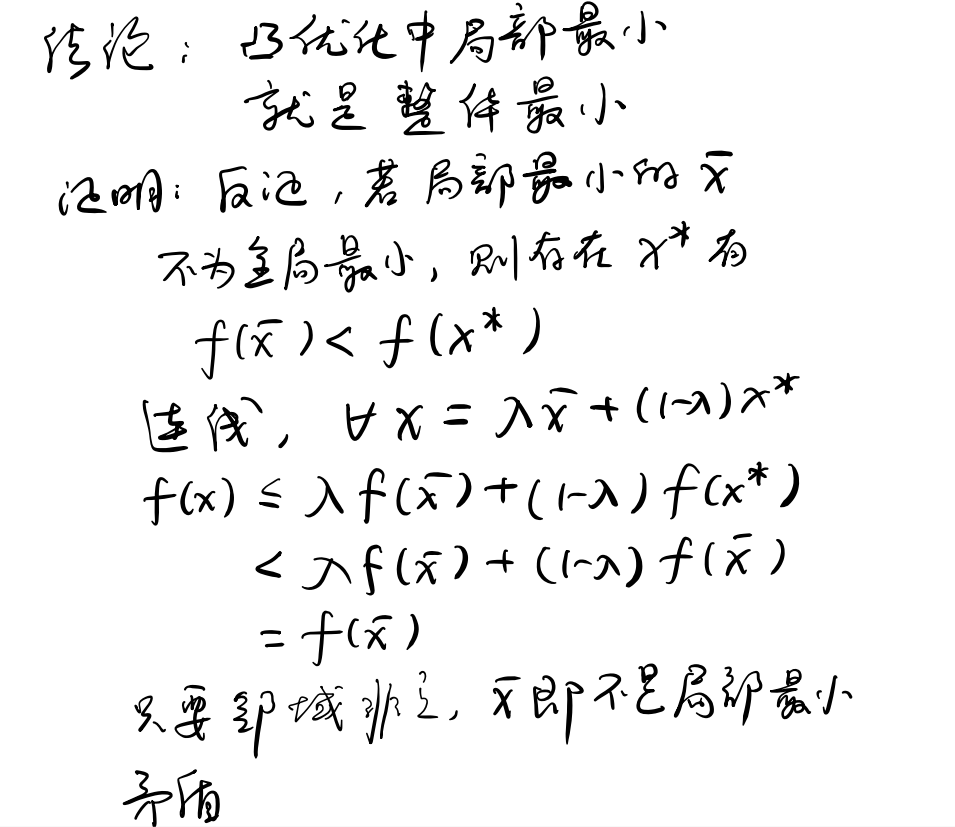 结论：凸优化中局部最小
就是整体最小
证明：反证，若局部最小的 x̄
不为全局最小，则存在 x* 有
f(x̄) < f(x*)
连线，∀ x = λx̄ + (1-λ)x*
f(x) ≤ λf(x̄) + (1-λ)f(x*)
< λf(x̄) + (1-λ)f(x̄)
= f(x̄)
只要邻域非空，x̄即不是局部最小
矛盾